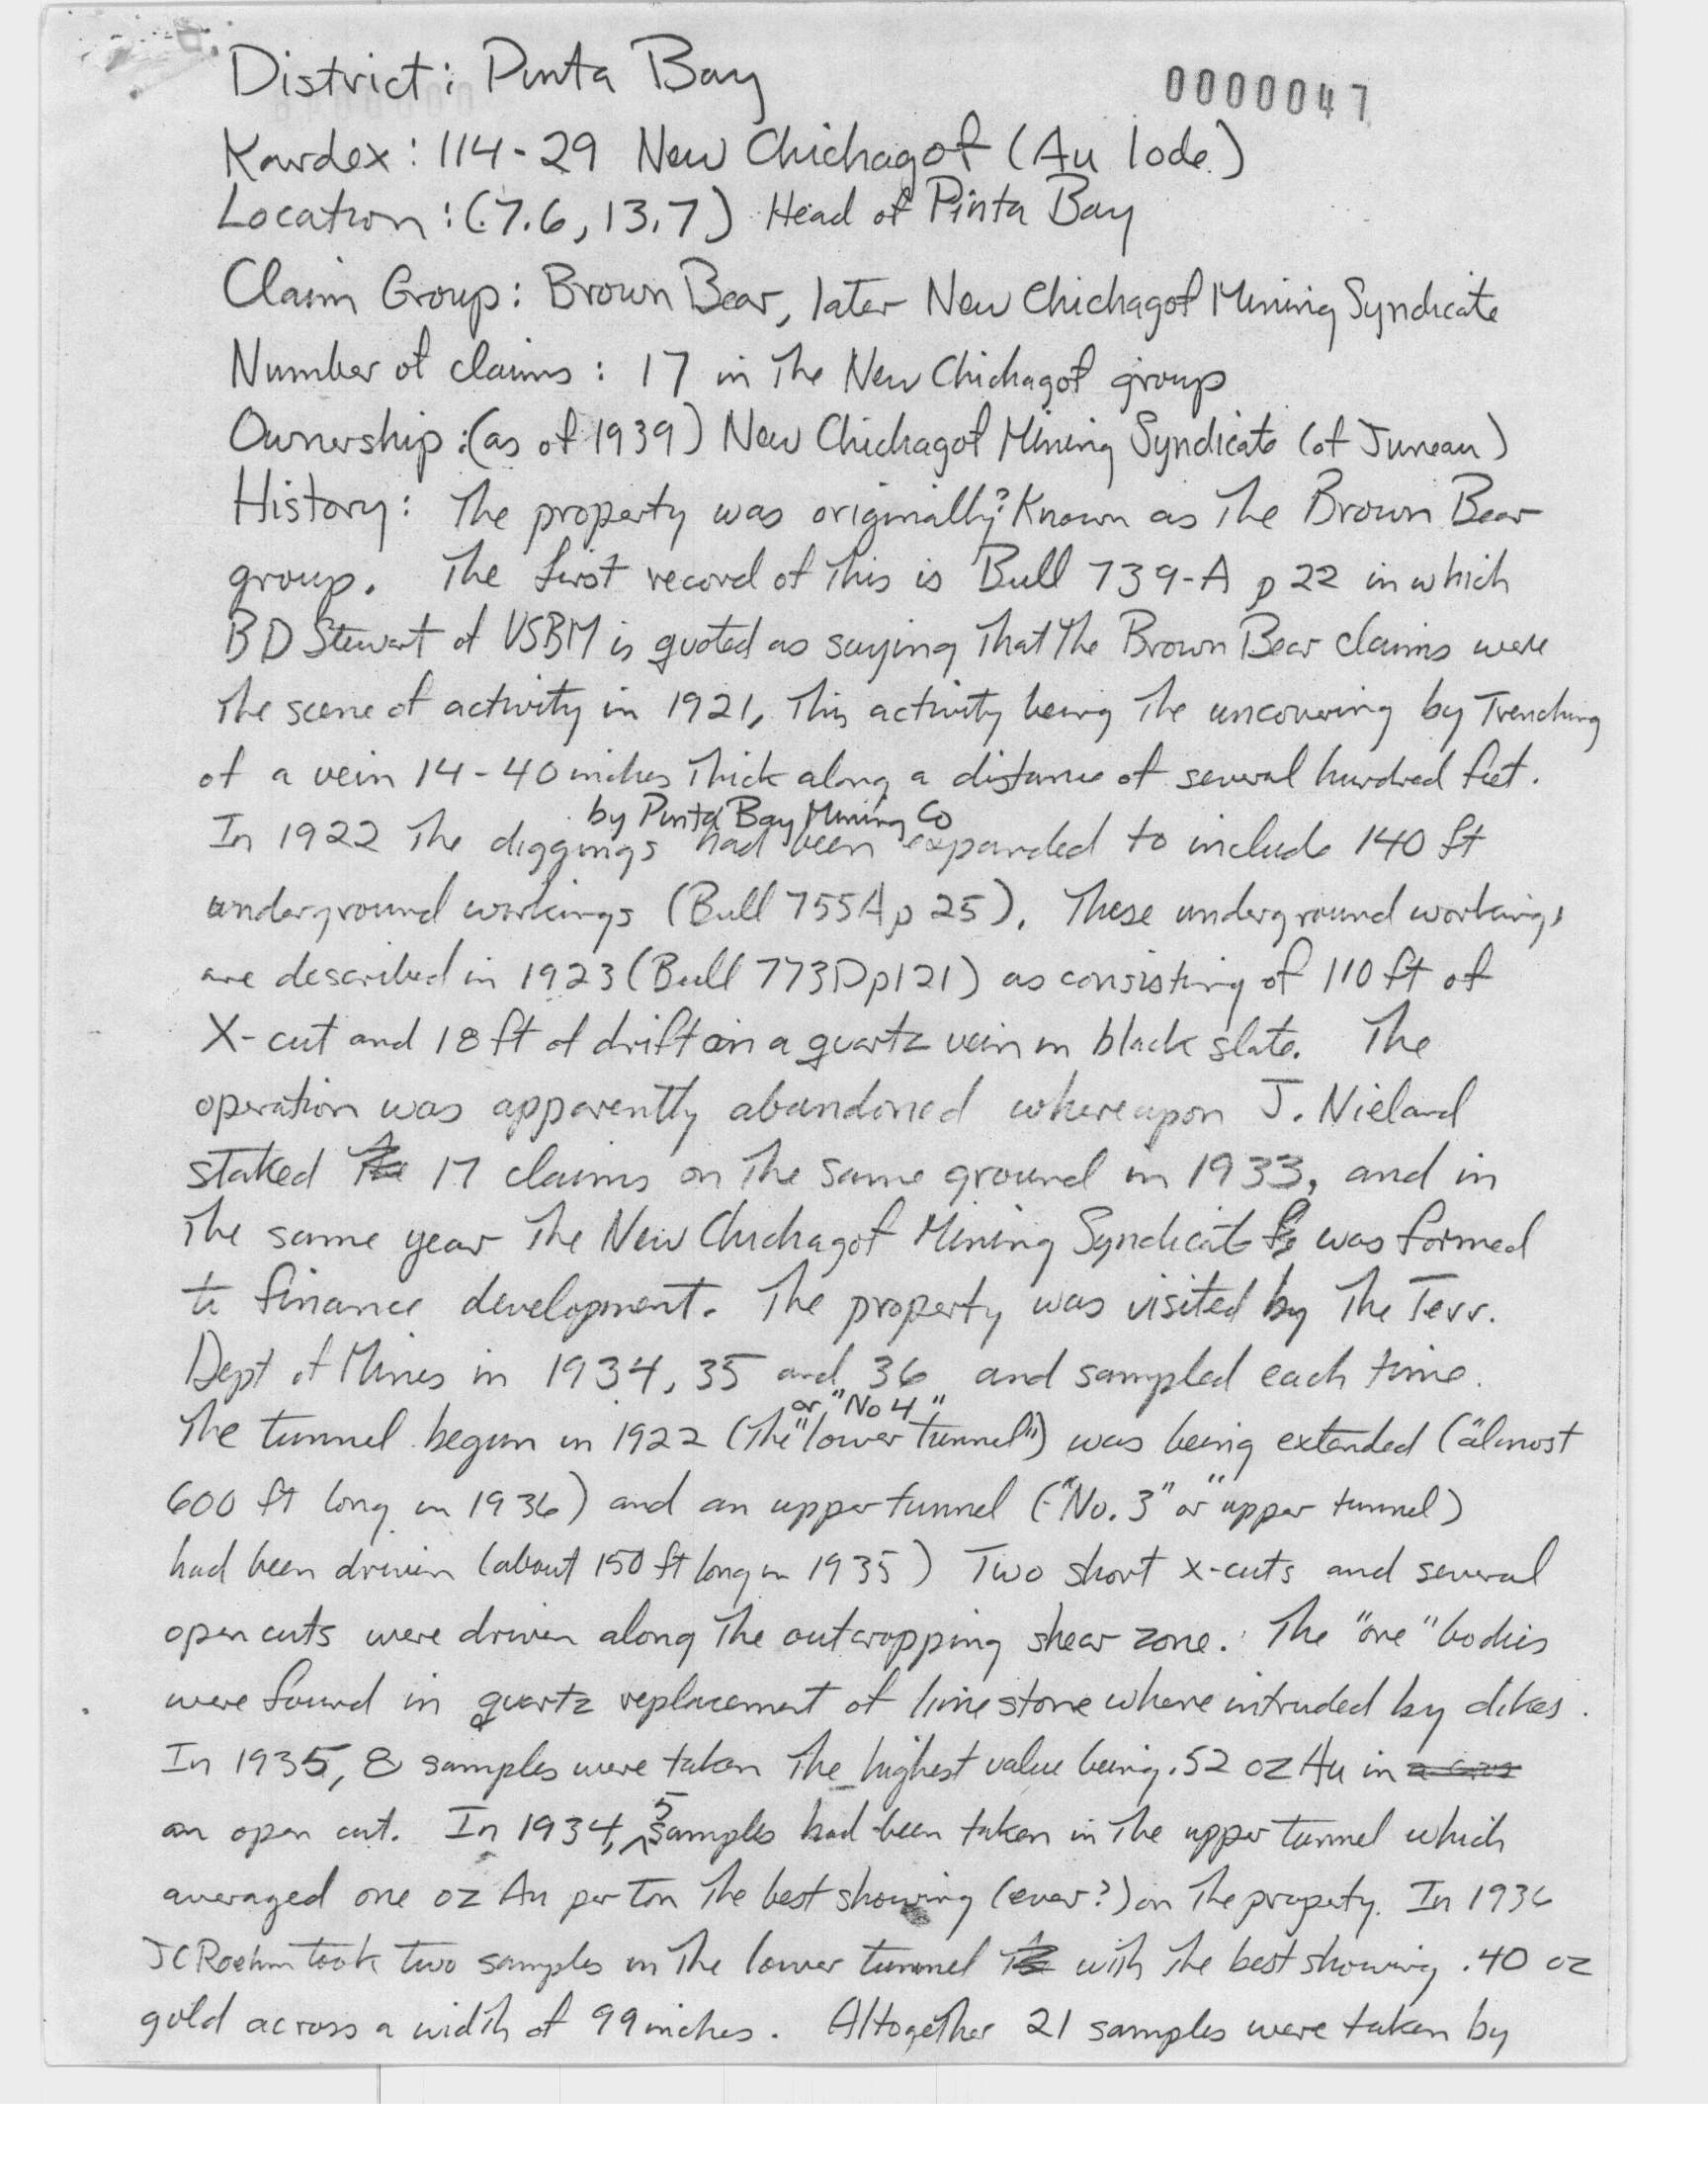 District: Pinta Bay
0000047
Kardex: 114-29 New Chichagof (Au lode)
Location: (7.6, 13.7) Head of Pinta Bay
Claim Group: Brown Bear, later New Chichagof Mining Syndicate
Number of claims: 17 in the New Chichagof group
Ownership: (as of 1939) New Chichagof Mining Syndicate (of Juneau)
History: The property was originally? Known as The Brown Bear
group. The first record of this is Bull 739-A p 22 in which
BD Stewart of USBM is quoted as saying That the Brown Bear claims were
the scene of activity in 1921, This activity being the uncovering by Trenching
of a vein 14-40 inches Thick along a distance of several hundred feet.
by Pinta Bay Mining Co
In 1922 the diggings had been expanded to include 140 ft
underground workings (Bull 755A p 25). These underground workings
are described in 1923 (Bull 773D p121) as consisting of 110 ft of
X-cut and 18 ft of drift on a quartz vein in black slate. The
operation was apparently abandoned whereupon J. Nieland
staked 17 claims on the same ground in 1933, and in
the same year the New Chichagof Mining Syndicate was formed
to finance development. The property was visited by The Terr.
Dept of Mines in 1934, 35 and 36 and sampled each time.
or "No 4"
The tunnel begun in 1922 (The "lower tunnel") was being extended ("almost
600 ft long in 1936) and an upper tunnel ("No. 3" or "upper tunnel)
had been driven (about 150 ft long in 1935) Two short x-cuts and several
open cuts were driven along the outcropping shear zone. The "ore" bodies
were found in quartz replacement of limestone where intruded by dikes.
In 1935, 8 samples were taken the highest value being .52 oz Au in
an open cut. In 1934, 5 samples had been taken in the upper tunnel which
averaged one oz Au per Ton The best showing (ever?) on the property. In 1936
JC Roehm took two samples in the lower tunnel with the best showing .40 oz
gold across a width of 99 inches. Altogether 21 samples were taken by